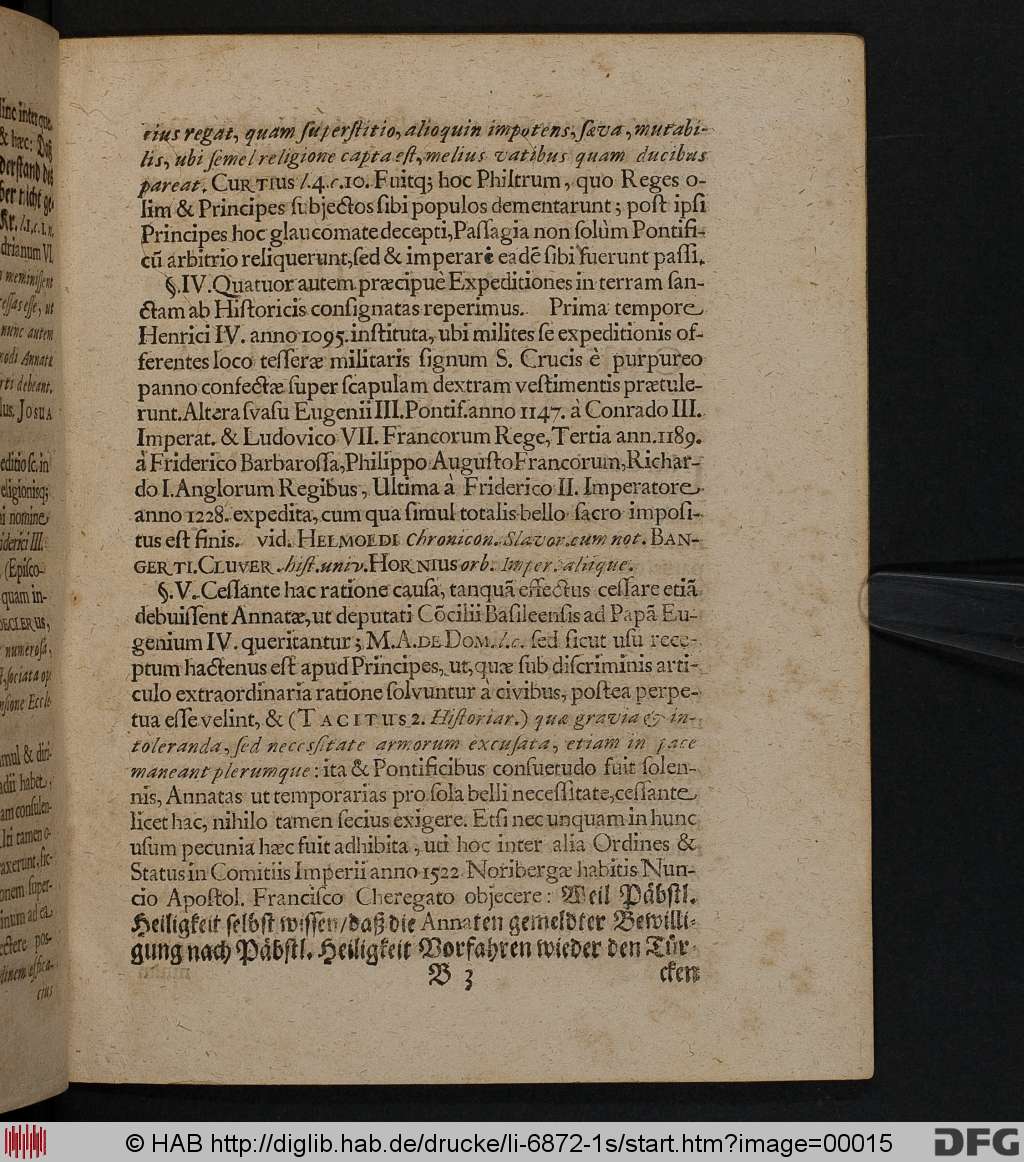 linc inter que
& hæc: Daß
derstand des
ber nicht ge
drianum VI.
n meminissent
cessas esse, ut
nunc autem
modi Annata
rti debeant.
lus. JOSUA
editio sc. in
eligionisq;
ni nomine
iderici III.
(Episco-
quam in-
DECLERUS,
numerosa,
st, sociata op
nsione Eccle
mul & diri-
adii habet,
am consulen-
Iti tamen o-
axerunt, sic-
onem super-
inum ad ea
ectere pos-
dinem effica-
cius
cius regat, quam superstitio, alioquin impotens, sæva, mutabi-
lis, ubi semel religione capta est, melius vatibus quam ducibus
pareat. CURTIUS l.4.c.10. Fuitq; hoc Philtrum, quo Reges o-
lim & Principes subjectos sibi populos dementarunt; post ipsi
Principes hoc glaucomate decepti, Passagia non solùm Pontifi-
cū arbitrio reliquerunt, sed & imperare eadē sibi fuerunt passi.
§. IV. Quatuor autem præcipuè Expeditiones in terram san-
ctam ab Historicis consignatas reperimus. Prima tempore
Henrici IV. anno 1095. instituta, ubi milites se expeditionis of-
ferentes loco tesseræ militaris signum S. Crucis è purpureo
panno confectæ super scapulam dextram vestimentis prætule-
runt. Altera svasu Eugenii III. Pontif. anno 1147. à Conrado III.
Imperat. & Ludovico VII. Francorum Rege, Tertia ann. 1189.
à Friderico Barbarossa, Philippo Augusto Francorum, Richar-
do I. Anglorum Regibus, Ultima à Friderico II. Imperatore
anno 1228. expedita, cum qua simul totalis bello sacro imposi-
tus est finis. vid. HELMOEDI Chronicon. Slavor. cum not. BAN-
GERTI. CLUVER. hist. univ. HORNIUS orb. Imper. aliique.
§. V. Cessante hac ratione causa, tanquā effectus cessare etiā
debuissent Annatæ, ut deputati Cōcilii Basileensis ad Papā Eu-
genium IV. queritantur; M. A. DE DOM. l.c. sed sicut usu rece-
ptum hactenus est apud Principes, ut, quæ sub discriminis arti-
culo extraordinaria ratione solvuntur à civibus, postea perpe-
tua esse velint, & (TACITUS 2. Historiar.) quæ gravia & in-
toleranda, sed necessitate armorum excusata, etiam in pace
maneant plerumque: ita & Pontificibus consuetudo fuit solen-
nis, Annatas ut temporarias pro sola belli necessitate, cessante
licet hac, nihilo tamen secius exigere. Etsi nec unquam in hunc
usum pecunia hæc fuit adhibita, uti hoc inter alia Ordines &
Status in Comitiis Imperii anno 1522 Noribergæ habitis Nun-
cio Apostol. Francisco Cheregato objecere: Weil Päbstl.
Heiligkeit selbst wissen/ daß die Annaten gemeldter Bewilli-
gung nach Päbstl. Heiligkeit Vorfahren wieder den Tür-
B 3 cken
© HAB http://diglib.hab.de/drucke/li-6872-1s/start.htm?image=00015
DFG